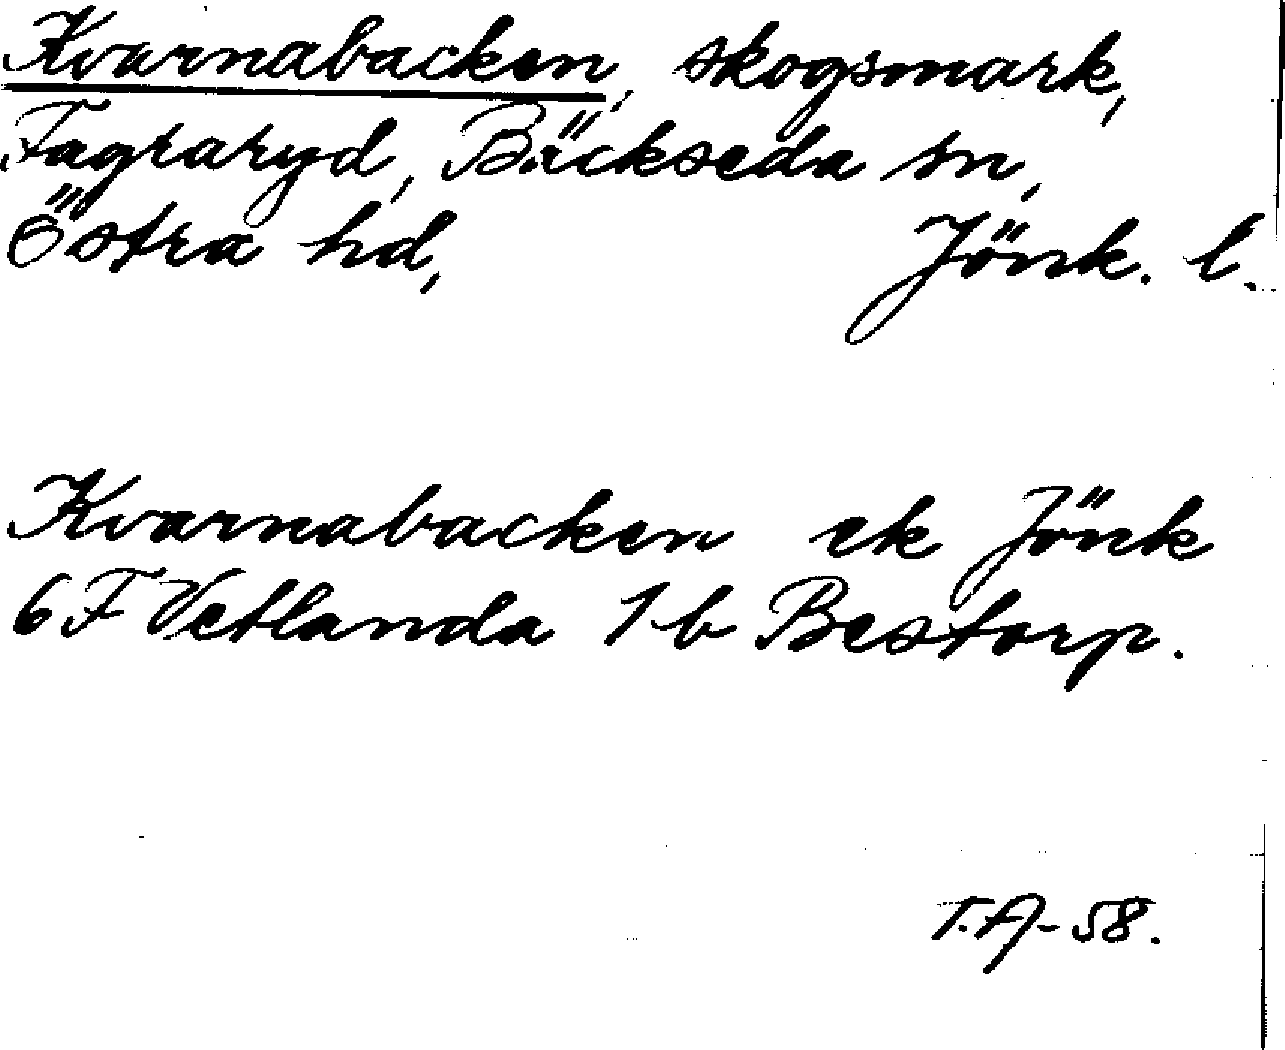 Kvarnabacken, skogsmark,
Fagraryd, Bäckseda sn,
Östra hd, Jönk. l.
Kvarnabacken ek Jönk
6 F Vetlanda 1 b Bestorp.
T.A-58.